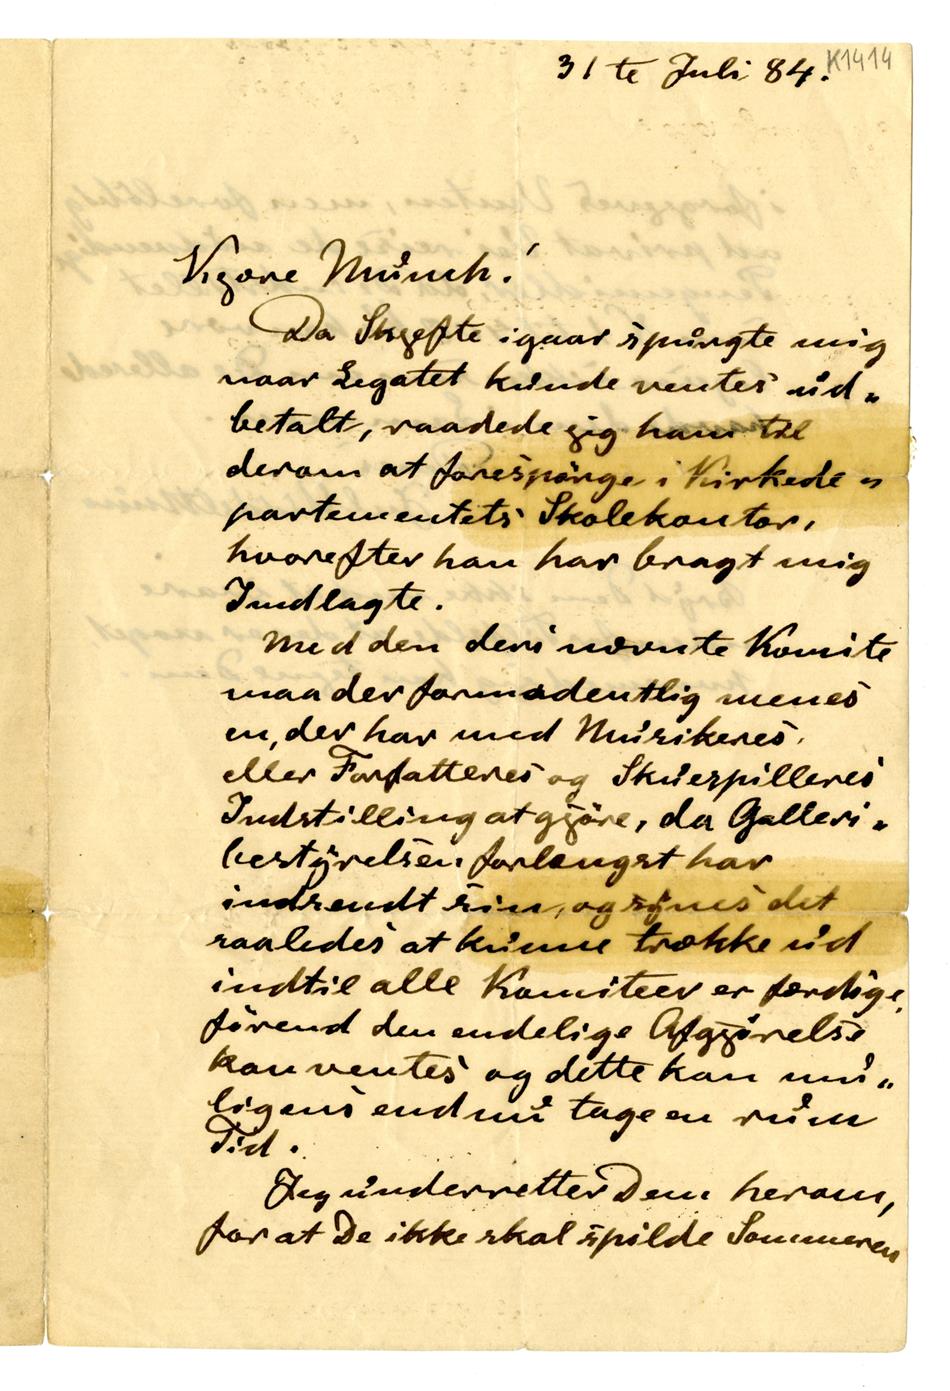 31te Juli 84.
K1414
Kjære Munch!
Da Skjefte igaar spurgte mig
naar Legatet kunde ventes ud„
betalt, raadede jeg ham til
derom at forespörge i Kirkede„
partementets Skolekontor,
hvorefter han har bragt mig
Indlagte.
Med den deri nævnte Komite
maa der formodentlig menes
en, der har med Musikeres,
eller Forfatteres og Skuespilleres
Indstilling at gjöre, da Galleri„
bestyrelsen forlængst har
indsendt sin, og synes det
saaledes at kunne trække ud
indtil alle Komiteer er færdige,
förend den endelige Afgjörelse
kan ventes og dette kan mu„
ligens endnu tage en rum
Tid.
Jeg underretter Dem herom,
for at De ikke skal spilde Sommeren